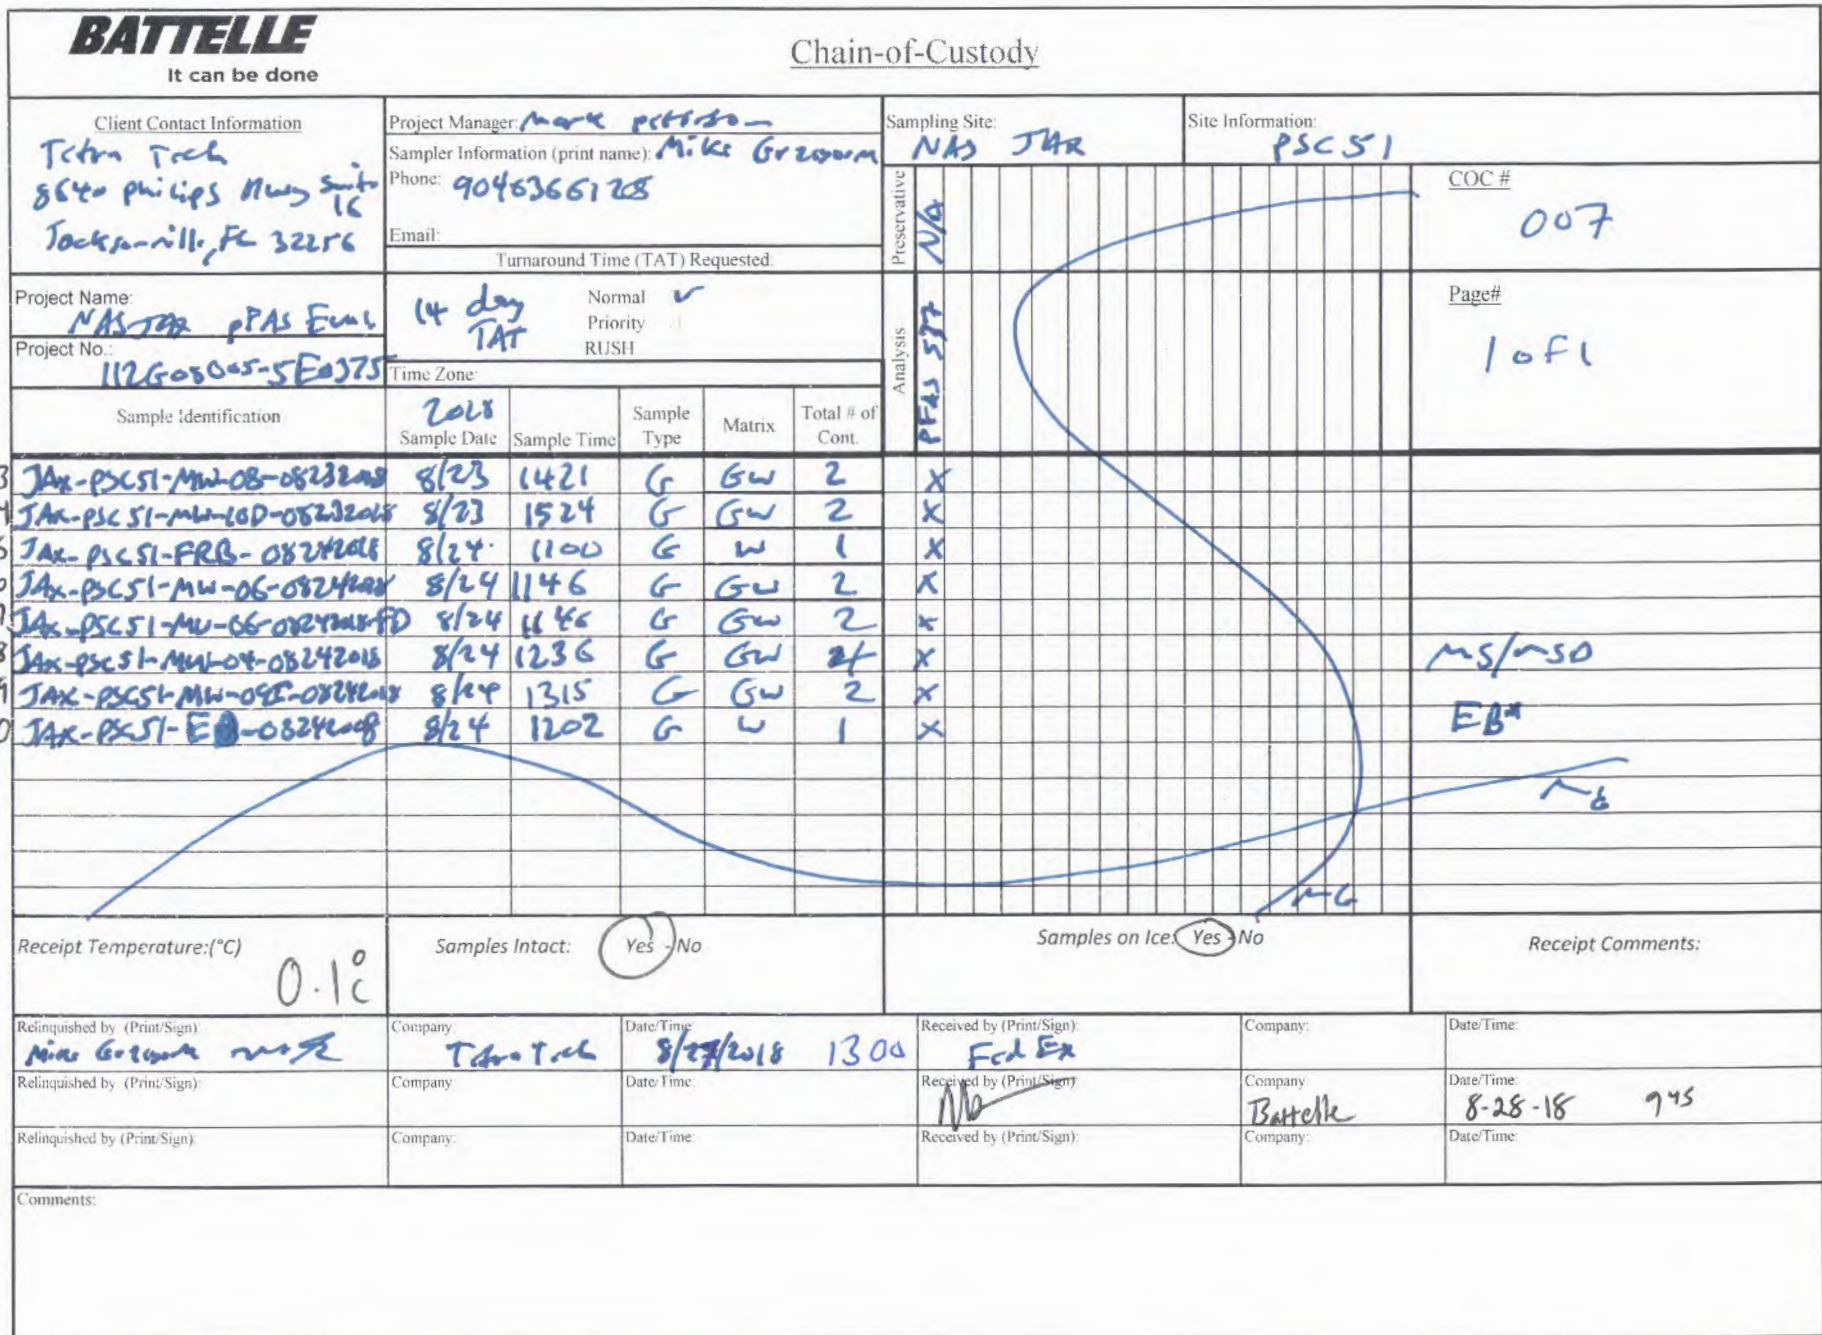 BATTELLE
It can be done
Chain-of-Custody
Client Contact Information
Tetra Tech
8640 Philips Hwy Suite
16
Jacksonville, FL 32256
Project Manager: Mark Peterson
Sampler Information (print name): Mike
Phone: 9046366125
Email:
Turnaround Time (TAT) Requested:
Sampling Site:
NAS JAX
Site Information:
PSC 51
Preservative
N/A
COC #
007
Project Name:
NAS JAX PFAS Eval
Project No.:
112G08005-5E0375
14 day
TAT
Normal ✓
Priority
RUSH
Time Zone:
Analysis
PFAS 537
Page#
1 of 1
Sample Identification
2018
Sample Date
Sample Time
Sample Type
Matrix
Total # of Cont.
JAX-PSC51-MW-08-08232018 8/23 1421 G GW 2 X
JAX-PSC51-MW-10D-08232018 8/23 1524 G GW 2 X
JAX-PSC51-FRB-08242018 8/24 1100 G W 1 X
JAX-PSC51-MW-06-08242018 8/24 1146 G GW 2 X
JAX-PSC51-MW-06-08242018-FD 8/24 1146 G GW 2 X
JAX-PSC51-MW-04-08242018 8/24 1236 G GW X MS/MSD
JAX-PSC51-MW-09I-08242018 8/24 1315 G GW 2 X
JAX-PSC51-EB-08242018 8/24 1202 G W 1 X EB*
MG
MG
Receipt Temperature:(°C)
0.1°C
Samples Intact: Yes - No
Samples on Ice: Yes - No
Receipt Comments:
Relinquished by (Print/Sign)
Mike
Company:
Tetra Tech
Date/Time:
8/27/2018 1300
Received by (Print/Sign):
Fed Ex
Company:
Date/Time:
Relinquished by (Print/Sign):
Company:
Date/Time:
Received by (Print/Sign)
Company
Battelle
Date/Time:
8-28-18 945
Relinquished by (Print/Sign):
Company:
Date/Time:
Received by (Print/Sign):
Company:
Date/Time:
Comments: